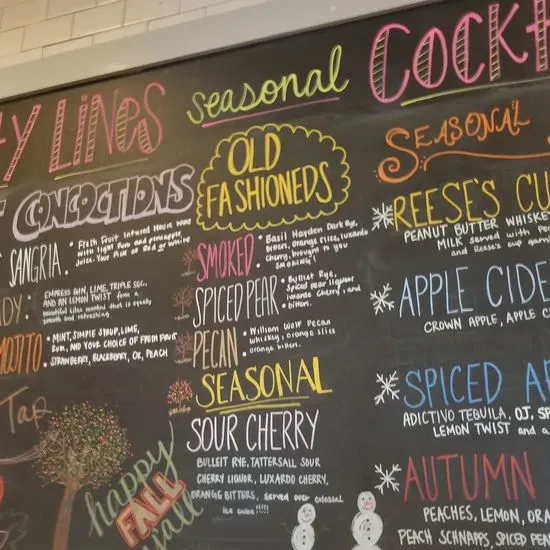 Y LiNES
CONCOCTIONS
SANGRIA.
• Fresh Fruit Infused House Wine
with light rum and pineapple
juice. Your Pick of Red or White
DY:
EMPRESS GIN, LIME, TRIPLE SEC,
AND AN LEMON TWIST form a
beautiful lilac martini that is equally
smooth and refreshing
MOJITO
• MINT, SIMPLE SYRUP, LIME,
RUM, AND YOUR CHOICE OF FRESH FRUIT
STRAWBERRY, BLACKBERRY, OR, PEACH
Tap
happy
FALL
y'all
seasonal
OLD
FASHIONEDS
SMOKED
• Basil Hayden Dark Rye,
bitters, orange slice, luxardo
cherry, brought to you
SMOKING!
SPICED PEAR
• Bulleit Rye,
Spiced pear liquor
luxardo cherry, and
bitters.
PECAN
• William Wolf Pecan
whiskey, orange slice
orange bitters.
SEASONAL
SOUR CHERRY
BULLEIT RYE, TATTERSALL SOUR
CHERRY LIQUOR, LUXARDO CHERRY,
ORANGE BITTERS, served over colossal
ice cubes !!!!!
COCKT
SEASONAL
REESE'S CU
PEANUT BUTTER WHISKE
MILK served with Pe
and Reese's cup garn
APPLE CIDE
CROWN APPLE, APPLE C
SPICED AP
ADICTIVO TEQUILA, OJ, SP
LEMON TWIST and a
AUTUMN
PEACHES, LEMON, ORA
PEACH SCHNAPPS, SPICED PEA